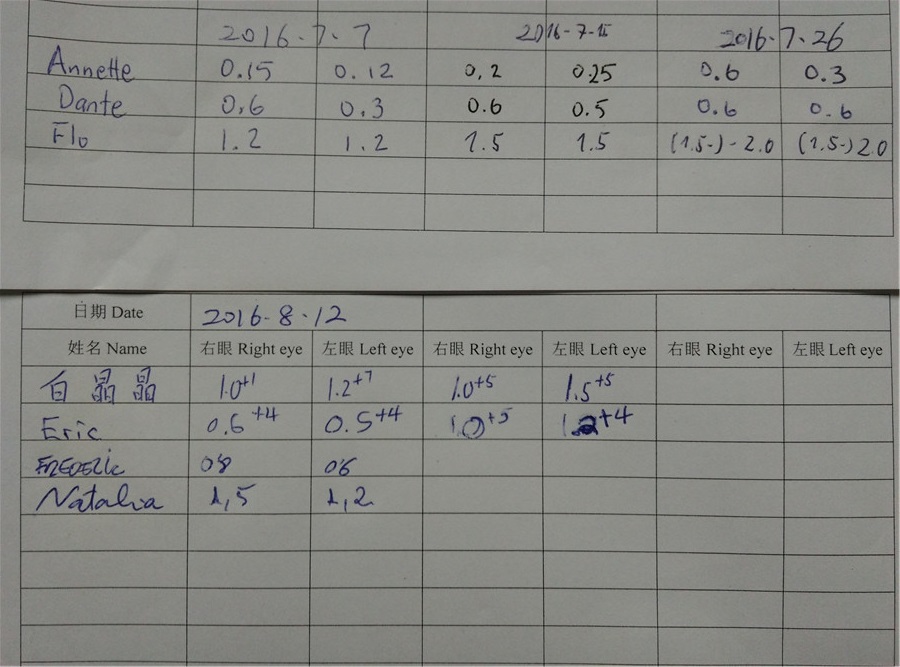 2016.7.7 2016-7-15 2016.7.26
Annette 0.15 0.12 0,2 0.25 0.6 0.3
Dante 0,6 0,3 0.6 0.5 0.6 0.6
Flo 1.2 1.2 1.5 1.5 (1.5-)-2.0 (1.5-)2.0
日期 Date 2016-8.12
姓名 Name 右眼 Right eye 左眼 Left eye 右眼 Right eye 左眼 Left eye 右眼 Right eye 左眼 Left eye
白晶晶 1.0+1 1.2+7 1.0+5 1.5+5
Eric 0.6+4 0.5+4 1.0+5 1.2+4
FREDERic 0'8 0'6
Natalia 1,5 1,2